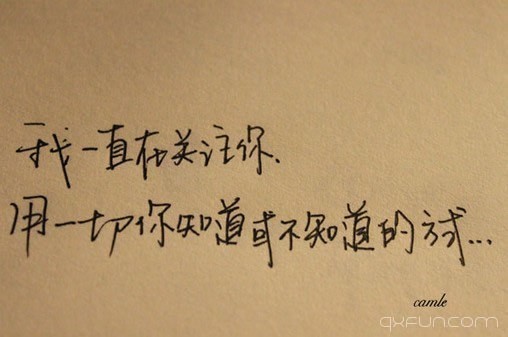 我一直在关注你.
用一切你知道或不知道的方式...
camle
qxfun.com